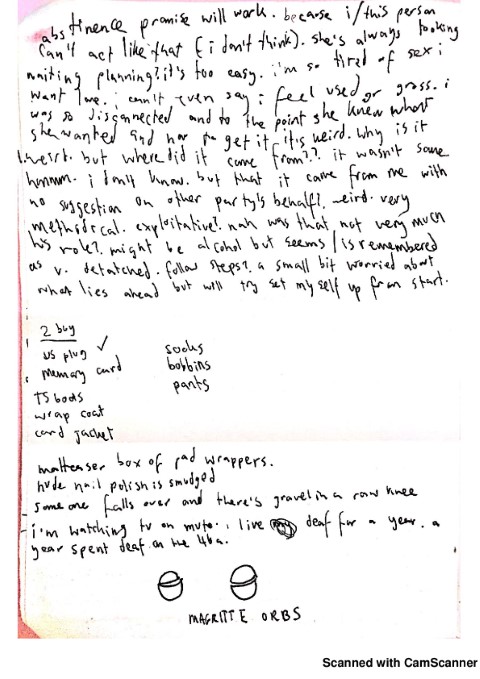 abstinence promise will work. because i/this person
can't act like that (i don't think). she's always looking
waiting planning? it's too easy. i'm so tired of sex i
want love. i can't even say i feel used or gross. i
was so disconnected and to the point she knew what
she wanted and how to get it it's weird. why is it
weird. but where did it come from?? it wasn't some
hmmm. i don't know. but that it came from me with
no suggestion on other party's behalf? weird. very
methodical. exploitative? nah was that not very much
his role? might be alcohol but seems/is remembered
as v. detatched. follow steps? a small bit worried about
what lies ahead but will try set myself up from start.
2 buy
us plug ✓
memory card
TS boots
wrap coat
card jacket
socks
bobbins
pants
malteaser box of rad wrappers.
nude nail polish is smudged
- someone falls over and there's gravel in a raw knee
- i'm watching tv on mute. i live deaf for a year. a
year spent deaf on the 46a.
MAGRITTE ORBS
Scanned with CamScanner